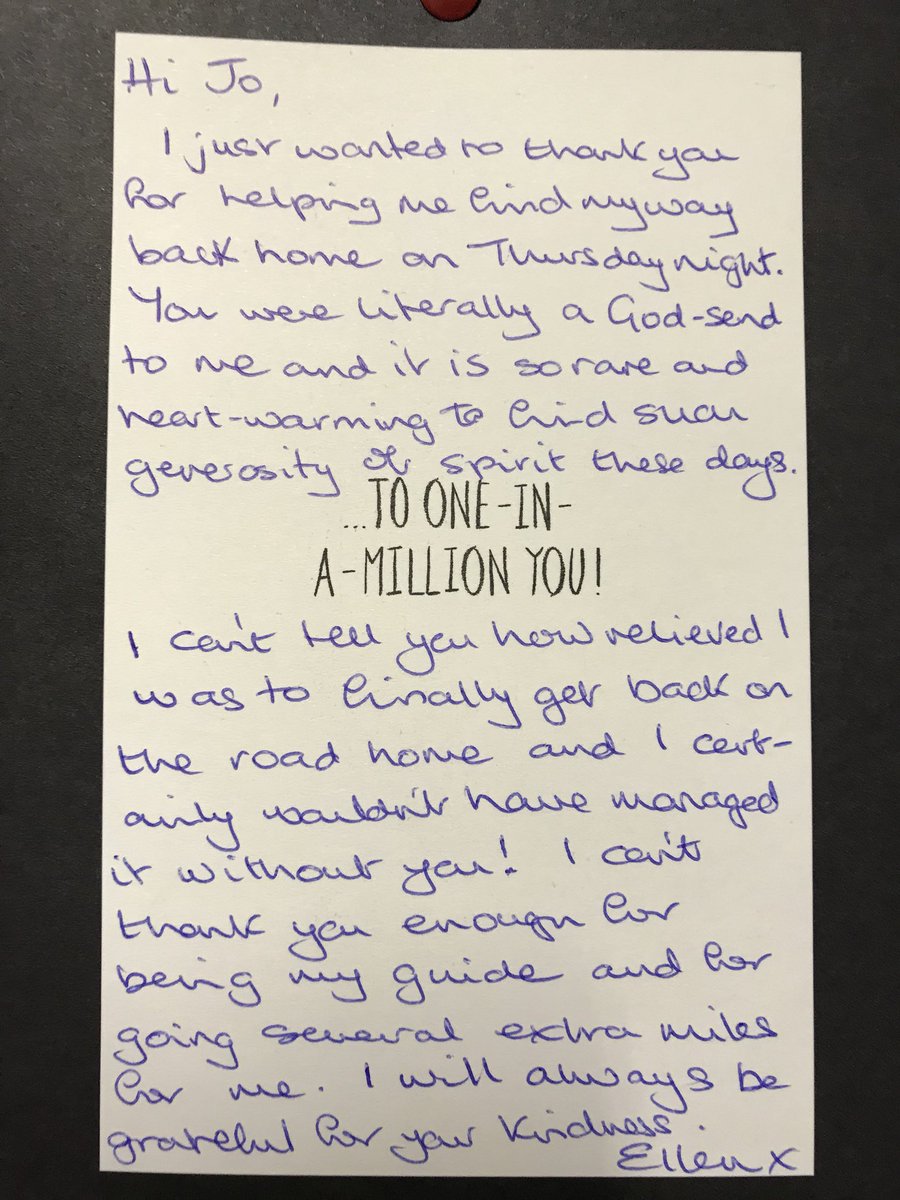 Hi Jo,
I just wanted to thank you
for helping me find my way
back home on Thursday night.
You were literally a God-send
to me and it is so rare and
heart-warming to find such
generosity of spirit these days.
...TO ONE-IN-
A-MILLION YOU!
I can't tell you how relieved I
was to finally get back on
the road home and I cert-
ainly wouldn't have managed
it without you! I can't
thank you enough for
being my guide and for
going several extra miles
for me. I will always be
grateful for your kindness.
Ellen x